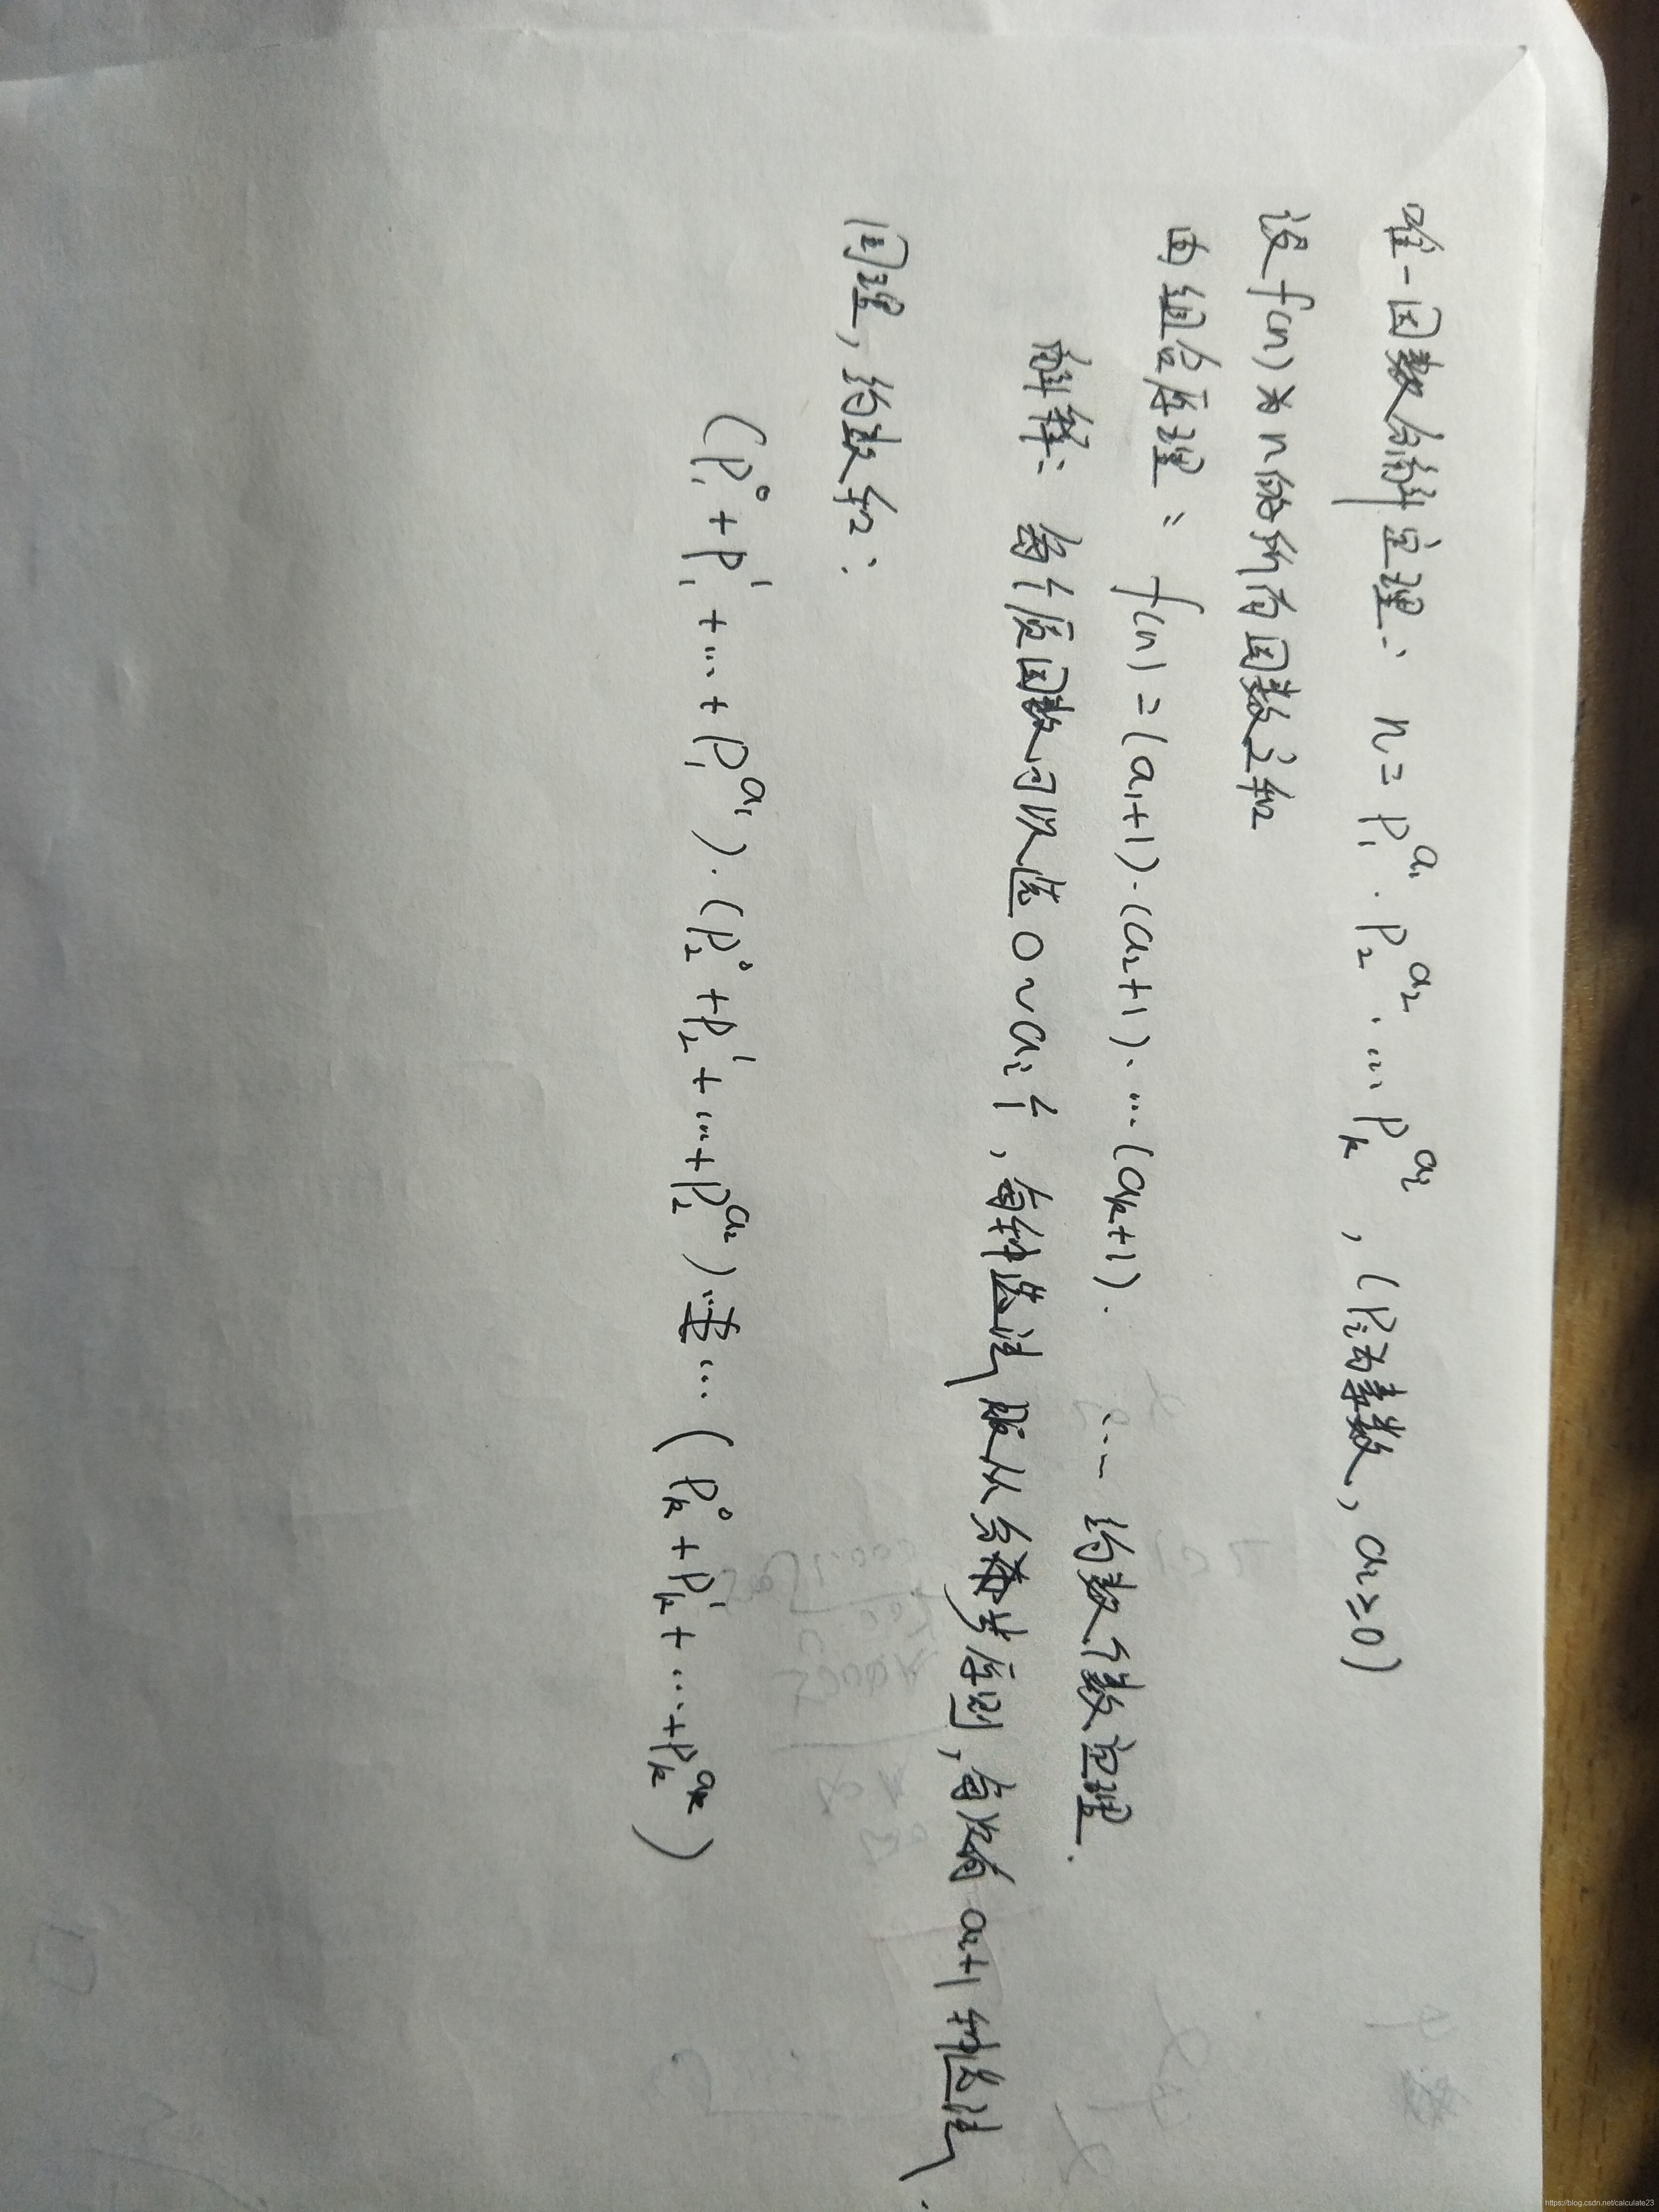 唯一因数分解定理: n = p₁^a₁ · p₂^a₂ · … pₖ^aᵢ , (pᵢ为素数, aᵢ≥0)
设 f(n) 为 n 的所有因数之和
由组合原理: f(n) = (a₁+1)·(a₂+1)·…(aₖ+1). … 约数个数定理.
解释: 每个质因数可以选 0~aᵢ个, 每种选法服从分步原则, 每次有 aᵢ+1 种选法.
同理, 约数和:
(p₁⁰ + p₁¹ + … + p₁^a₁)·(p₂⁰ + p₂¹ + … + p₂^a₂) … … (pₖ⁰ + pₖ¹ + … + pₖ^aₖ)
https://blog.csdn.net/calculate23